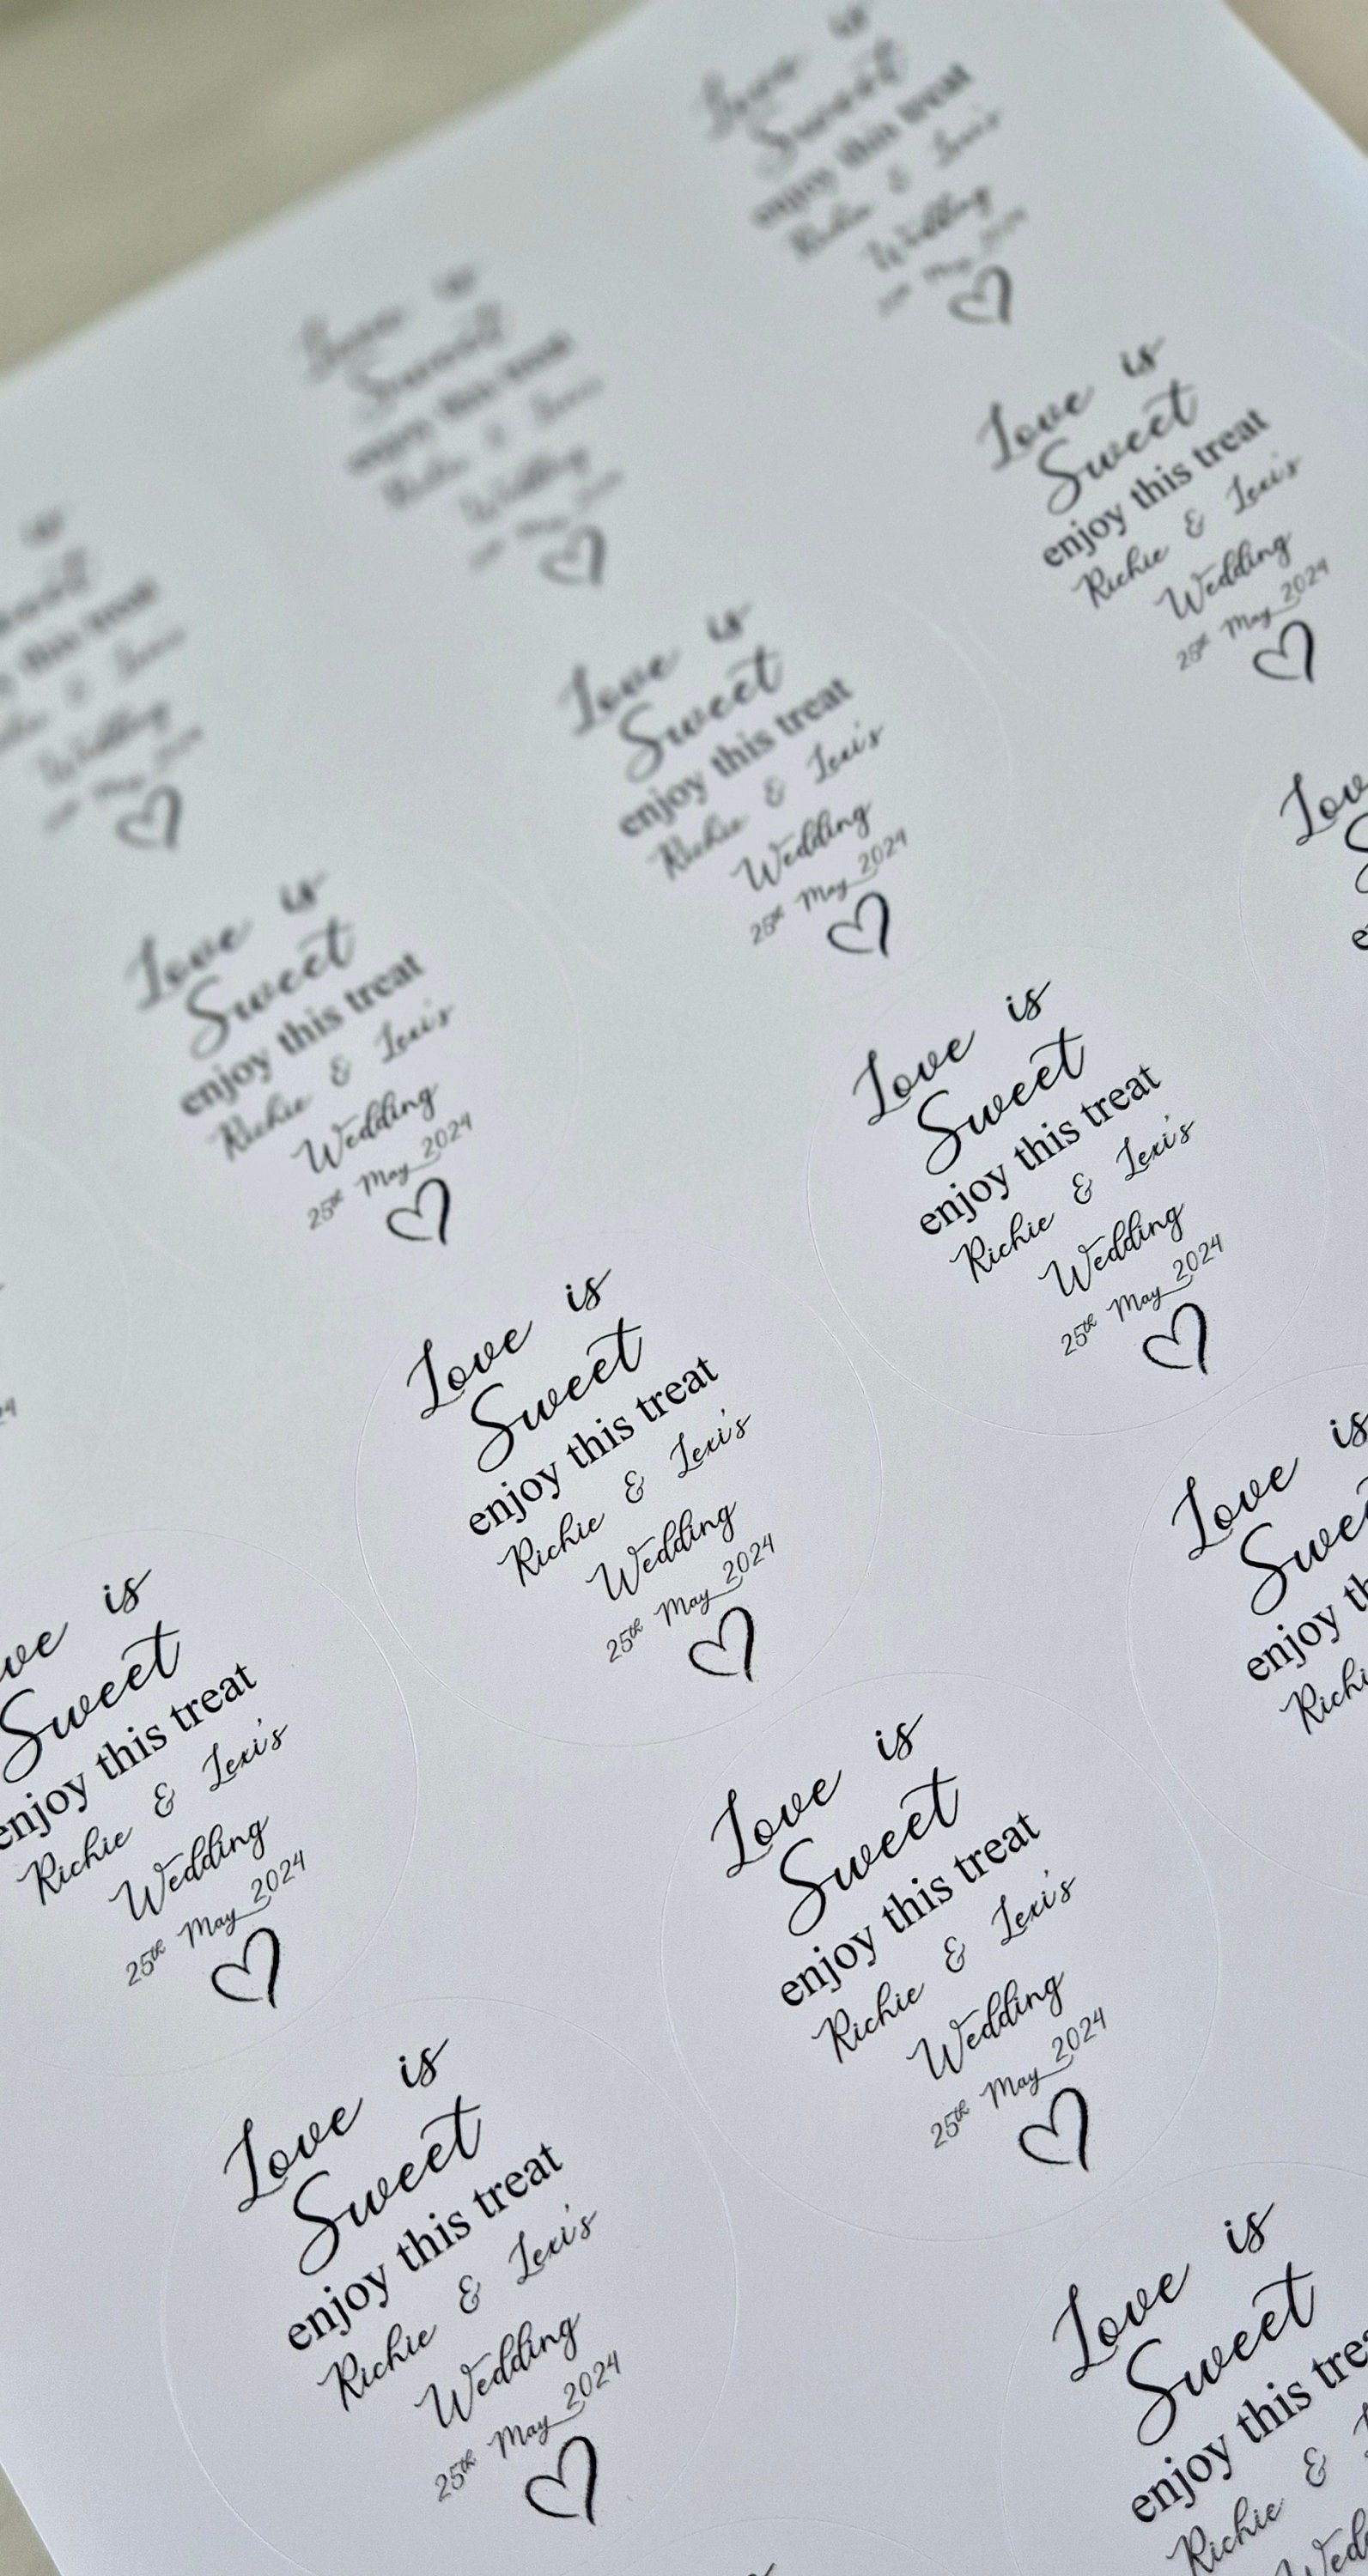 Love is
Sweet
enjoy this treat
Richie & Lexi's
Wedding
Love is
Sweet
enjoy this treat
Richie & Lexi's
Wedding
25th May 2024
Love is
Sweet
enjoy this treat
Richie & Lexi's
Wedding
25th May 2024
Love is
Sweet
enjoy this treat
Richie & Lexi's
Wedding
25th May 2024
Love is
Sweet
enjoy this treat
Richie & Lexi's
Wedding
25th May 2024
Love is
Sweet
enjoy this treat
Richie & Lexi's
Wedding
25th May 2024
Love is
enjoy
is
Sweet
enjoy this treat
Richie & Lexi's
Wedding
25th May 2024
Love is
Sweet
enjoy this treat
Richie & Lexi's
Wedding
25th May 2024
Love is
Sweet
enjoy this treat
Richie & Lexi's
Wedding
25th May 2024
Love is
Sweet
enjoy this
Richie &